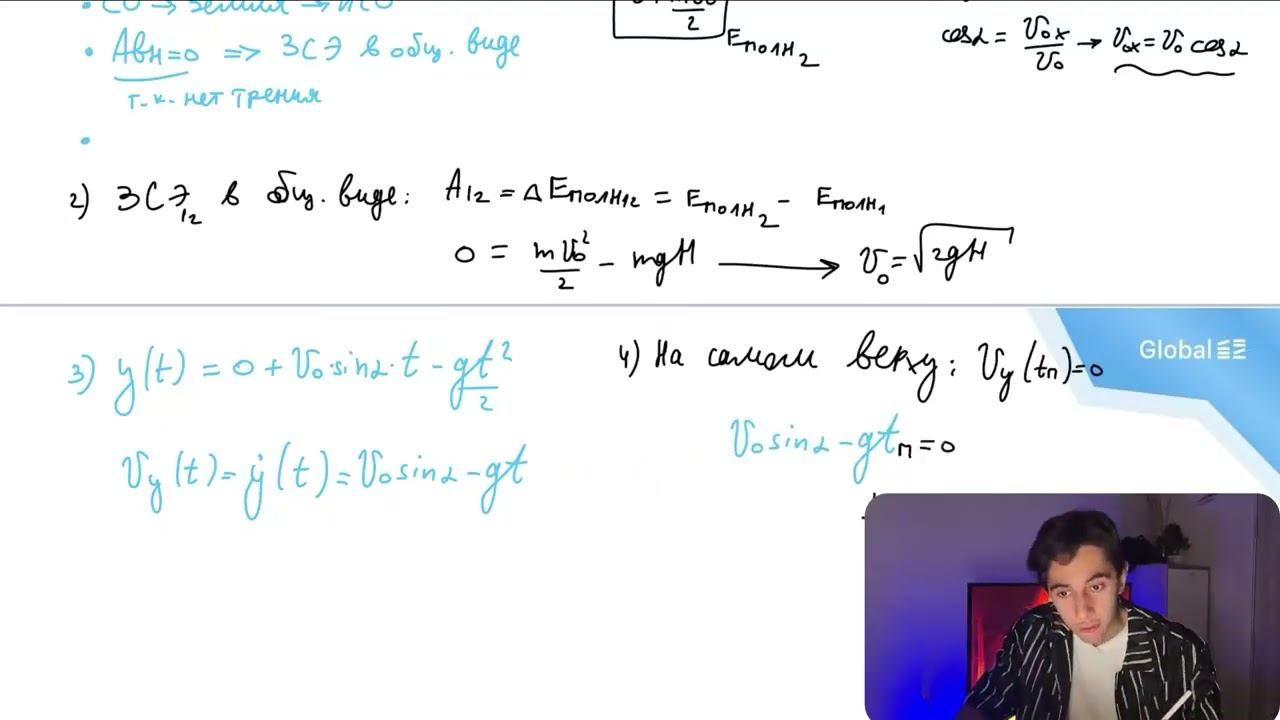 • СО → Земля → ИСО
• Aвн=0 => ЗСЭ в общ. виде
т.к. нет трения
•
2
Eполн2
cosα = V0x/V0 → V0x = V0 cosα
2) ЗСЭ12 в общ. виде: A12 = ΔEполн12 = Eполн2 - Eполн1
0 = mV0²/2 - mgH → V0 = √2gH
3) y(t) = 0 + V0·sinα·t - gt²/2
Vy(t) = ẏ(t) = V0sinα - gt
4) На самом верху: Vy(tп)=0
V0sinα - gtп = 0
Global ЕЭ